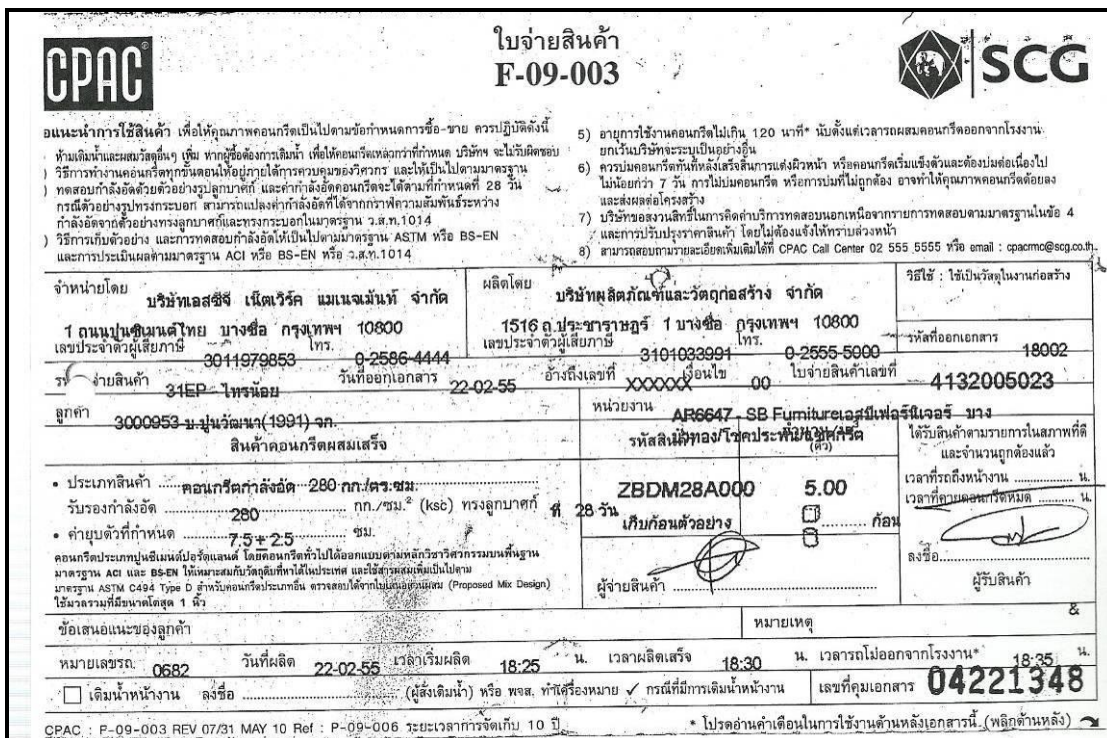 CPAC
ใบจ่ายสินค้า
F-09-003
SCG
คำแนะนำการใช้สินค้า เพื่อให้คุณภาพคอนกรีตเป็นไปตามข้อกำหนดการซื้อ-ขาย ควรปฏิบัติดังนี้
) ห้ามเติมน้ำและผสมวัสดุอื่นๆ เพิ่ม หากผู้ซื้อต้องการเติมน้ำ เพื่อให้คอนกรีตเหลวกว่าที่กำหนด บริษัทฯ จะไม่รับผิดชอบ
) วิธีการทำงานคอนกรีตทุกขั้นตอนให้อยู่ภายใต้การควบคุมของวิศวกร และให้เป็นไปตามมาตรฐาน
) ทดสอบกำลังอัดด้วยตัวอย่างรูปลูกบาศก์ และค่ากำลังอัดคอนกรีตจะได้ตามที่กำหนดที่ 28 วัน
กรณีตัวอย่างรูปทรงกระบอก สามารถแปลงค่ากำลังอัดที่ได้จากกราฟความสัมพันธ์ระหว่าง
กำลังอัดจากตัวอย่างทรงลูกบาศก์และทรงกระบอกในมาตรฐาน ว.ส.ท.1014
) วิธีการเก็บตัวอย่าง และการทดสอบกำลังอัดให้เป็นไปตามมาตรฐาน ASTM หรือ BS-EN
และการประเมินผลตามมาตรฐาน ACI หรือ BS-EN หรือ ว.ส.ท.1014
5) อายุการใช้งานคอนกรีตไม่เกิน 120 นาที* นับตั้งแต่เวลารถผสมคอนกรีตออกจากโรงงาน
ยกเว้นบริษัทจะระบุเป็นอย่างอื่น
6) ควรบ่มคอนกรีตทันทีหลังเสร็จสิ้นการแต่งผิวหน้า หรือคอนกรีตเริ่มแข็งตัวและต้องบ่มต่อเนื่องไป
ไม่น้อยกว่า 7 วัน การไม่บ่มคอนกรีต หรือการบ่มที่ไม่ถูกต้อง อาจทำให้คุณภาพคอนกรีตด้อยลง
และส่งผลต่อโครงสร้าง
7) บริษัทขอสงวนสิทธิ์ในการคิดค่าบริการทดสอบนอกเหนือจากรายการทดสอบตามมาตรฐานในข้อ 4
และการปรับปรุงราคาสินค้า โดยไม่ต้องแจ้งให้ทราบล่วงหน้า
8) สามารถสอบถามรายละเอียดเพิ่มเติมได้ที่ CPAC Call Center 02 555 5555 หรือ email : cpacrmc@scg.co.th
จำหน่ายโดย บริษัทเอสซีจี เน็ตเวิร์ค แมเนจเม้นท์ จำกัด
1 ถนนปูนซิเมนต์ไทย บางซื่อ กรุงเทพฯ 10800
เลขประจำตัวผู้เสียภาษี 3011979853 โทร. 0-2586-4444
ผลิตโดย บริษัทผลิตภัณฑ์และวัตถุก่อสร้าง จำกัด
1516 ถ.ประชาราษฎร์ 1 บางซื่อ กรุงเทพฯ 10800
เลขประจำตัวผู้เสียภาษี 3101033991 โทร. 0-2555-5000
วิธีใช้ : ใช้เป็นวัสดุในงานก่อสร้าง
รหัสที่ออกเอกสาร 18002
จ่ายสินค้า 31EP - ไทรน้อย วันที่ออกเอกสาร 22-02-55 อ้างถึงเลขที่ XXXXXX เงื่อนไข 00 ใบจ่ายสินค้าเลขที่ 4132005023
ลูกค้า 3000953 บ.ปูนวัฒนา(1991) จก.
หน่วยงาน AR6647 - SB Furnitureเอสบีเฟอร์นิเจอร์ บาง
สินค้าคอนกรีตผสมเสร็จ
รหัสสินค้า
ได้รับสินค้าตามรายการในสภาพที่ดี
และจำนวนถูกต้องแล้ว
เวลาที่รถถึงหน้างาน .......... น.
เวลาที่คายคอนกรีตหมด .......... น.
ลงชื่อ..........
ผู้รับสินค้า
• ประเภทสินค้า คอนกรีตกำลังอัด 280 กก./ตร.ซม.
รับรองกำลังอัด 280 กก./ซม.² (ksc) ทรงลูกบาศก์ ที่ 28 วัน
• ค่ายุบตัวที่กำหนด 7.5 ± 2.5 ซม.
ZBDM28A000 5.00
เก็บก้อนตัวอย่าง .......... ก้อน
ผู้จ่ายสินค้า ..........
คอนกรีตประเภทปูนซีเมนต์ปอร์ตแลนด์ โดยคอนกรีตทั่วไปได้ออกแบบตามหลักวิชาวิศวกรรมบนพื้นฐาน
มาตรฐาน ACI และ BS-EN ให้เหมาะสมกับวัตถุดิบที่หาได้ในประเทศ และใช้สารผสมเพิ่มเป็นไปตาม
มาตรฐาน ASTM C494 Type D สำหรับคอนกรีตประเภทอื่น ตรวจสอบได้จากใบเสนอส่วนผสม (Proposed Mix Design)
ใช้มวลรวมที่มีขนาดโตสุด 1 นิ้ว
&
ข้อเสนอแนะของลูกค้า
หมายเหตุ
หมายเลขรถ. 0682 วันที่ผลิต 22-02-55 เวลาเริ่มผลิต 18:25 น. เวลาผลิตเสร็จ 18:30 น. เวลารถโม่ออกจากโรงงาน* 18:35 น.
☐ เติมน้ำหน้างาน ลงชื่อ .......... (ผู้สั่งเติมน้ำ) หรือ พจส. ทำเครื่องหมาย ✓ กรณีที่มีการเติมน้ำหน้างาน เลขที่คุมเอกสาร 04221348
CPAC : P-09-003 REV 07/31 MAY 10 Ref : P-09-006 ระยะเวลาการจัดเก็บ 10 ปี
* โปรดอ่านคำเตือนในการใช้งานด้านหลังเอกสารนี้ (พลิกด้านหลัง)